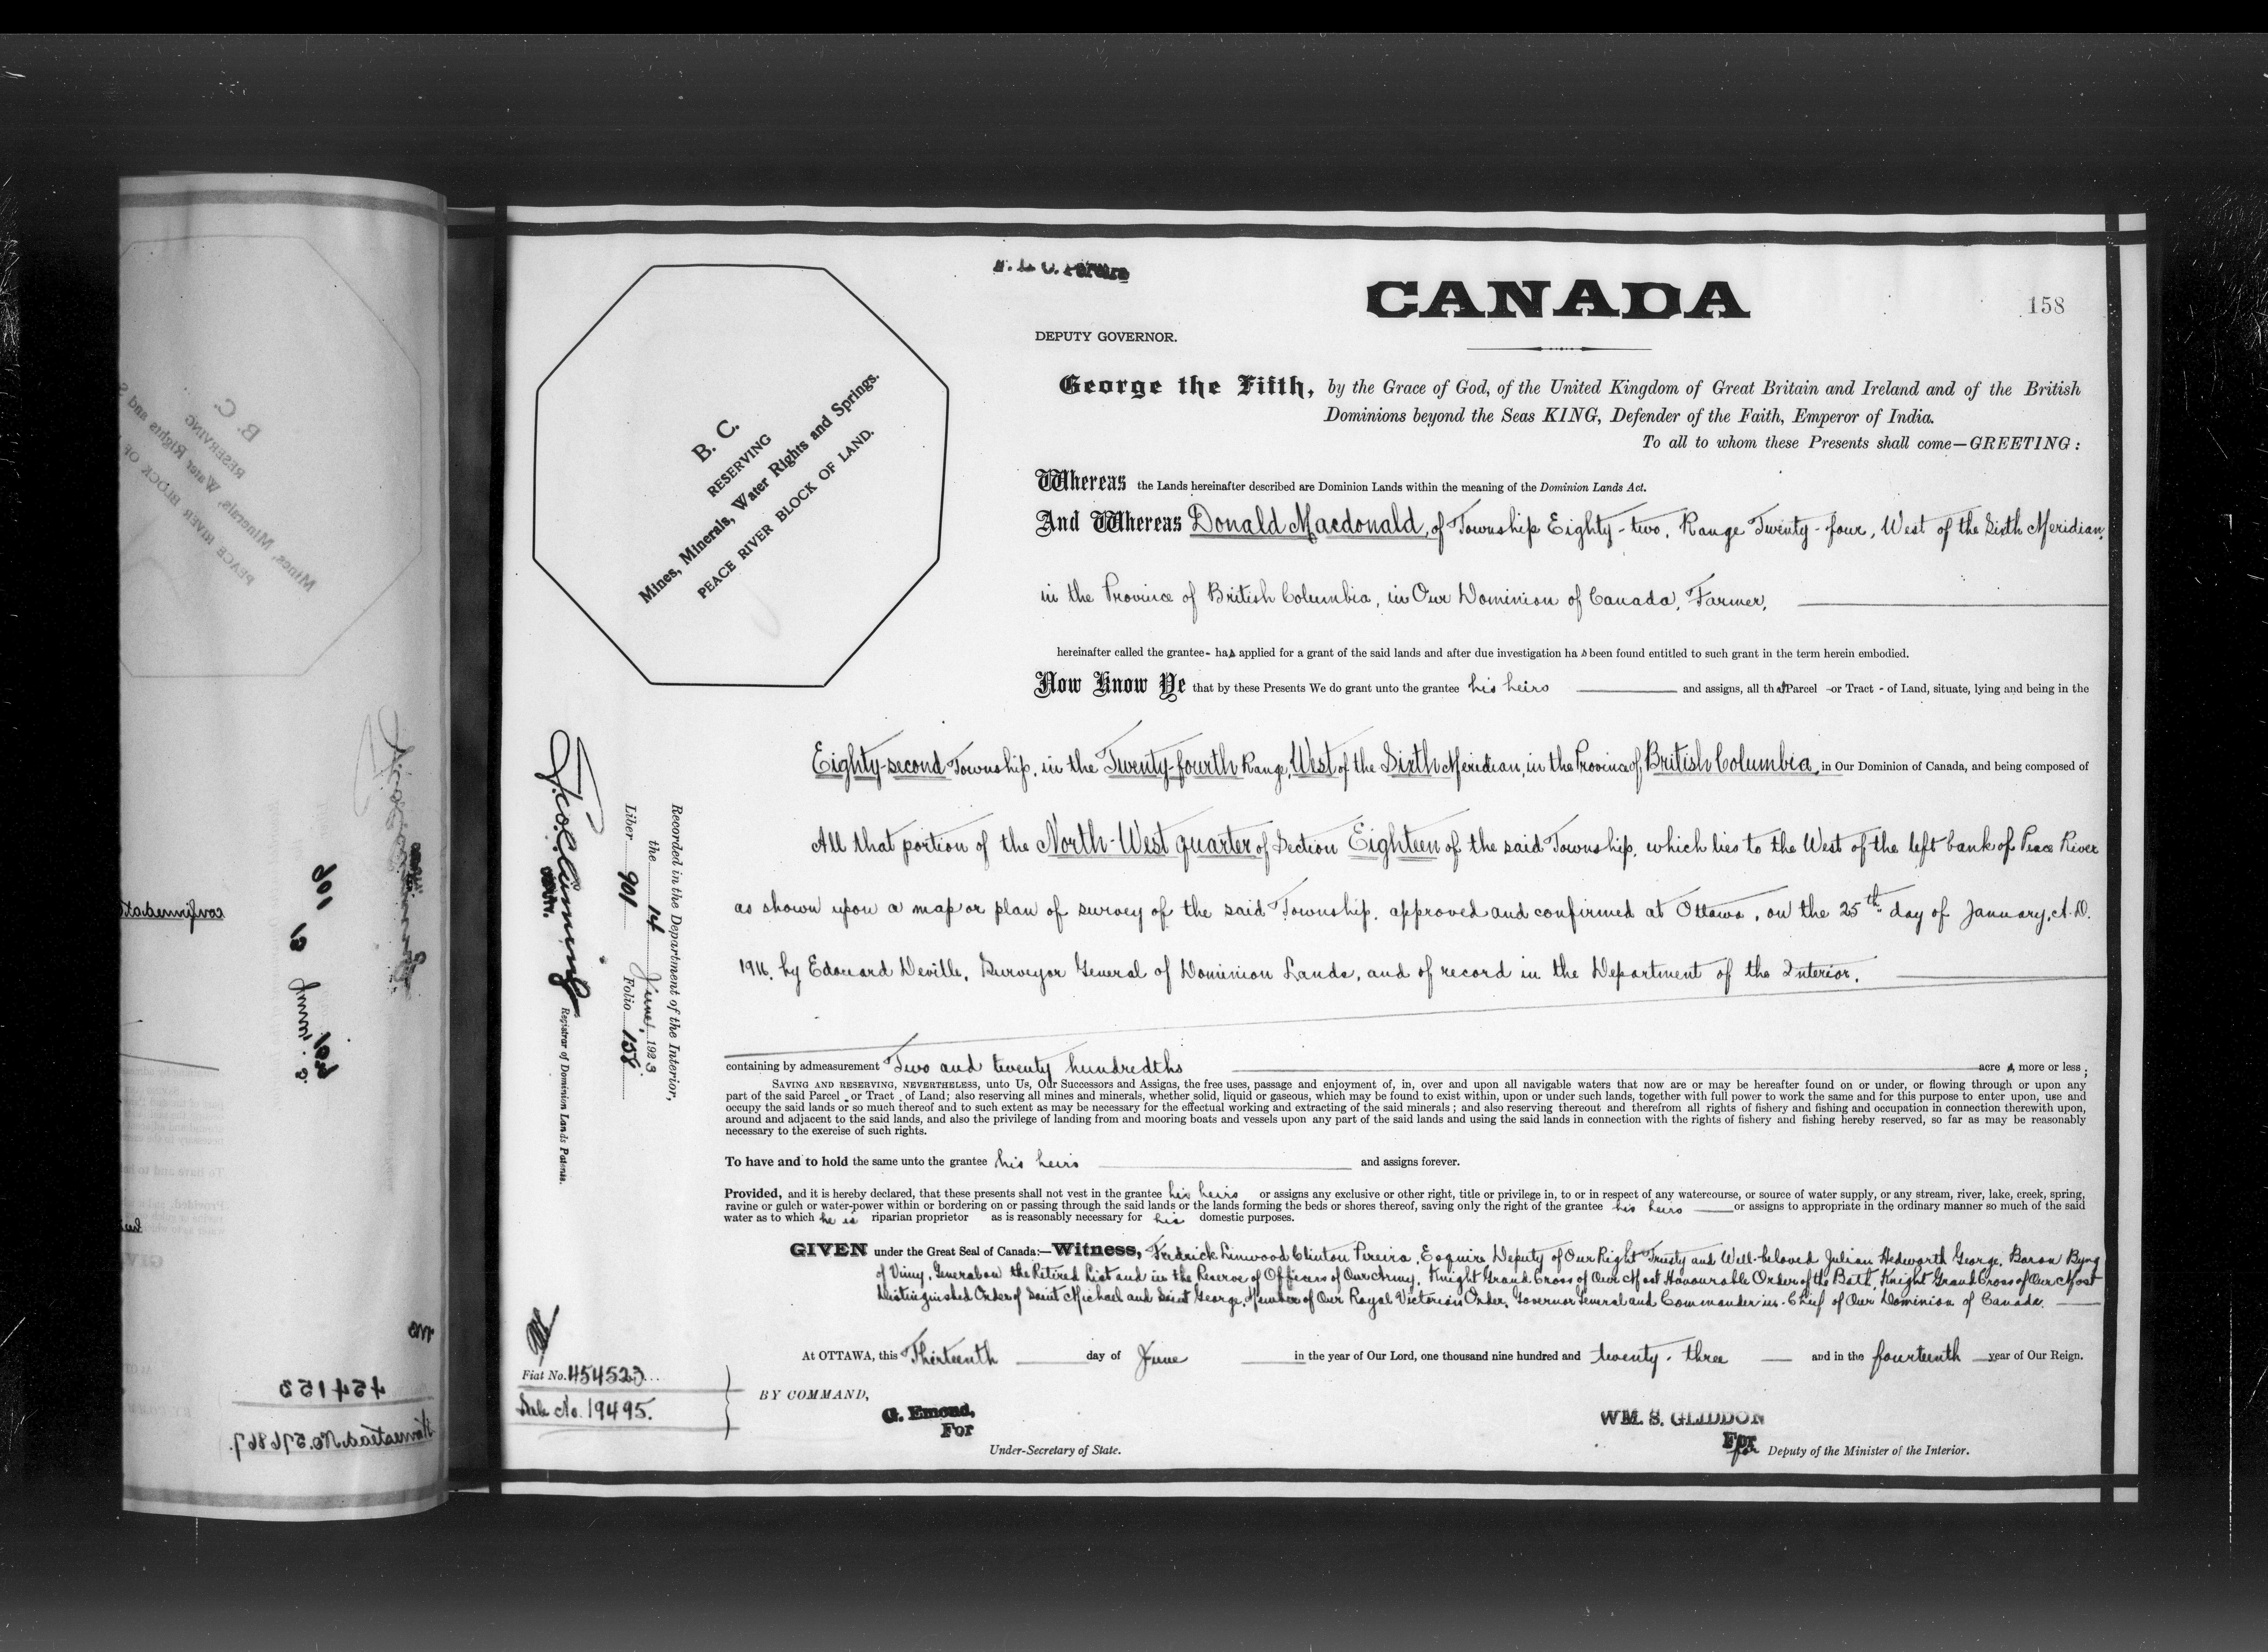 F. L. C. Pereira
CANADA
158
DEPUTY GOVERNOR.
George the Fifth, by the Grace of God, of the United Kingdom of Great Britain and Ireland and of the British
Dominions beyond the Seas KING, Defender of the Faith, Emperor of India.
To all to whom these Presents shall come—GREETING:
B. C.
RESERVING
Mines, Minerals, Water Rights and Springs.
PEACE RIVER BLOCK OF LAND.
Whereas the Lands hereinafter described are Dominion Lands within the meaning of the Dominion Lands Act.
And Whereas Donald Macdonald, of Township Eighty-two, Range Twenty-four, West of the Sixth Meridian,
in the Province of British Columbia, in Our Dominion of Canada, Farmer,
hereinafter called the grantee- has applied for a grant of the said lands and after due investigation ha s been found entitled to such grant in the term herein embodied.
Now Know Ye that by these Presents We do grant unto the grantee his heirs and assigns, all that Parcel -or Tract - of Land, situate, lying and being in the
Eighty-second Township, in the Twenty-fourth Range, West of the Sixth Meridian, in the Province of British Columbia, in Our Dominion of Canada, and being composed of
All that portion of the North-West quarter of Section Eighteen of the said Township, which lies to the West of the left bank of Peace River
as shown upon a map or plan of survey of the said Township, approved and confirmed at Ottawa, on the 25th day of January, A.D.
1916, by Edouard Deville, Surveyor General of Dominion Lands, and of record in the Department of the Interior.
containing by admeasurement Two and twenty hundredths acre s, more or less;
SAVING AND RESERVING, NEVERTHELESS, unto Us, Our Successors and Assigns, the free uses, passage and enjoyment of, in, over and upon all navigable waters that now are or may be hereafter found on or under, or flowing through or upon any
part of the said Parcel or Tract of Land; also reserving all mines and minerals, whether solid, liquid or gaseous, which may be found to exist within, upon or under such lands, together with full power to work the same and for this purpose to enter upon, use and
occupy the said lands or so much thereof and to such extent as may be necessary for the effectual working and extracting of the said minerals; and also reserving thereout and therefrom all rights of fishery and fishing and occupation in connection therewith upon,
around and adjacent to the said lands, and also the privilege of landing from and mooring boats and vessels upon any part of the said lands and using the said lands in connection with the rights of fishery and fishing hereby reserved, so far as may be reasonably
necessary to the exercise of such rights.
To have and to hold the same unto the grantee his heirs and assigns forever.
Provided, and it is hereby declared, that these presents shall not vest in the grantee his heirs or assigns any exclusive or other right, title or privilege in, to or in respect of any watercourse, or source of water supply, or any stream, river, lake, creek, spring,
ravine or gulch or water-power within or bordering on or passing through the said lands or the lands forming the beds or shores thereof, saving only the right of the grantee his heirs or assigns to appropriate in the ordinary manner so much of the said
water as to which he is riparian proprietor as is reasonably necessary for his domestic purposes.
GIVEN under the Great Seal of Canada:—Witness, Fredrick Linwood Clinton Pereira, Esquire Deputy of Our Right Trusty and Well-beloved Julian Hedworth George, Baron Byng
of Vimy, General on the Retired List and in the Reserve of Officers of Our Army, Knight Grand Cross of Our Most Honourable Order of the Bath, Knight Grand Cross of Our Most
Distinguished Order of Saint Michael and Saint George, Member of Our Royal Victorian Order, Governor General and Commander in-Chief of Our Dominion of Canada.
At OTTAWA, this Thirteenth day of June in the year of Our Lord, one thousand nine hundred and twenty-three and in the fourteenth year of Our Reign.
BY COMMAND,
G. Emond,
For
Under-Secretary of State.
WM. S. GLIDDON
For
for Deputy of the Minister of the Interior.
Recorded in the Department of the Interior,
the 14 June, 1923
Liber 901 Folio 158
Registrar of Dominion Lands Patents.
Fiat No. 454523
Sale No. 19495.